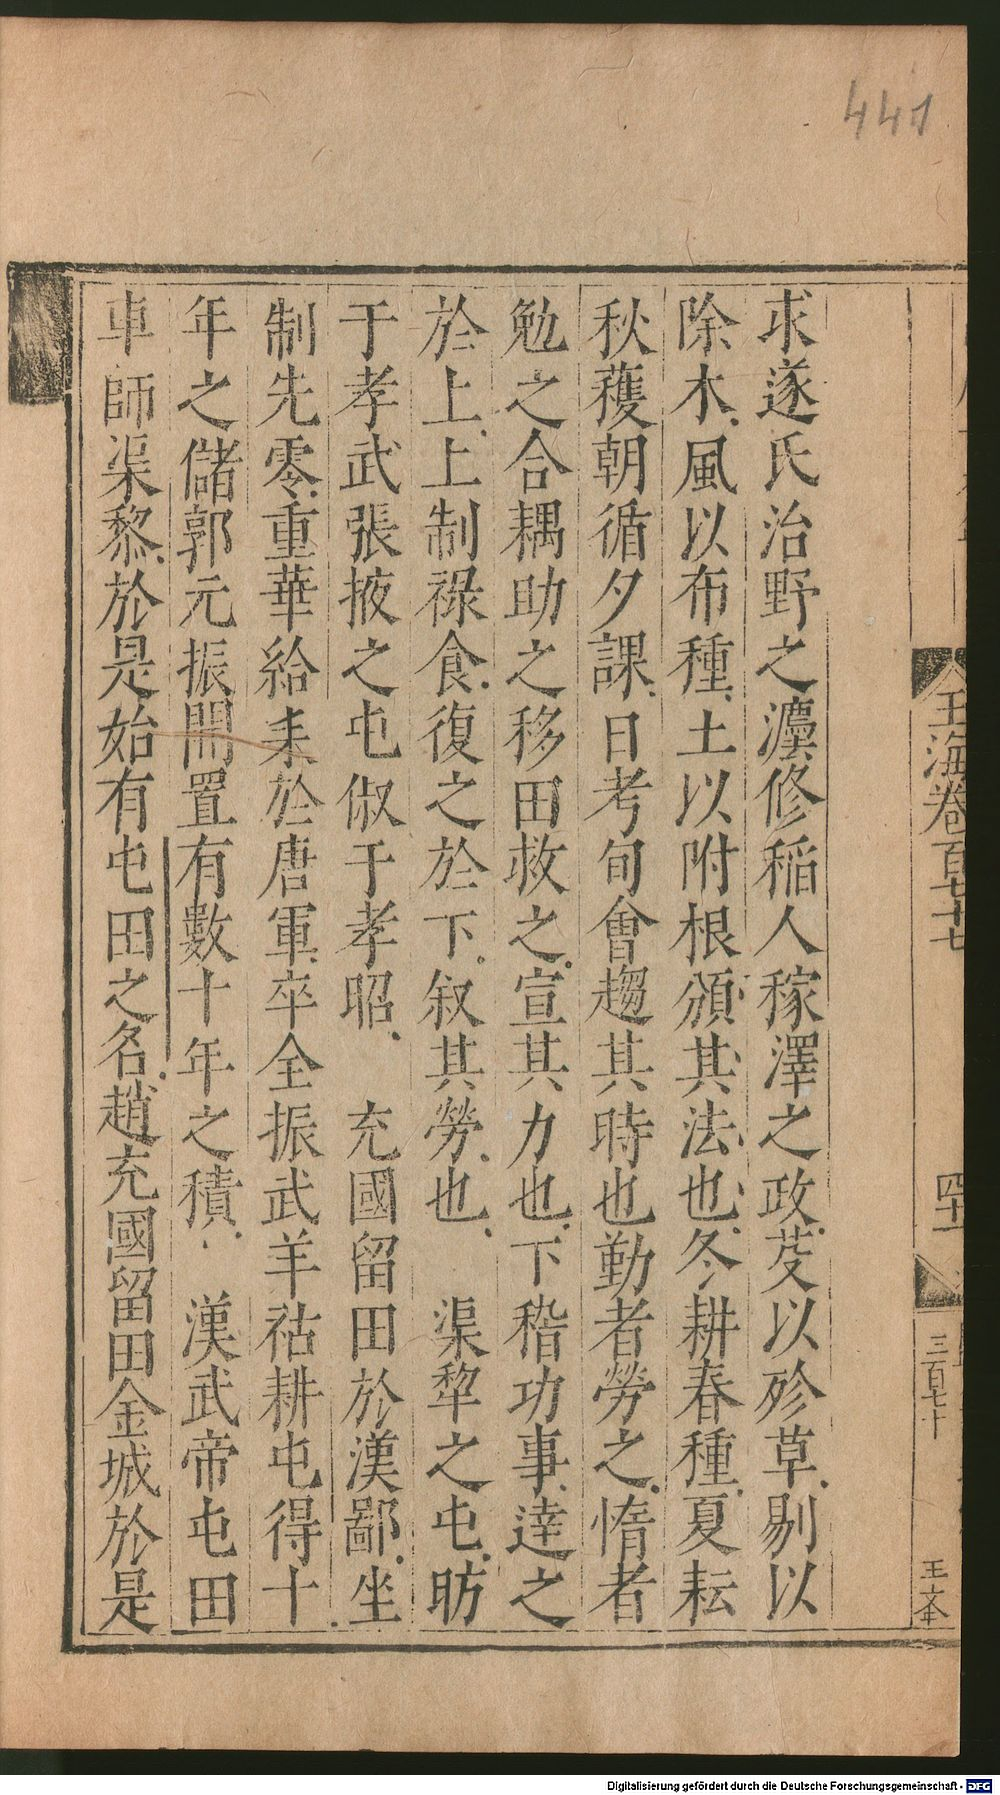 441
玉海卷百七十七
四十一
三百七十
王文奎
求遂氏治野之灋修稻人稼澤之政芟以殄草剔以
除木風以布種土以附根頒其法也冬耕春種夏耘
秋穫朝循夕課日考旬會趨其時也勤者勞之惰者
勉之合耦助之移田救之宣其力也下稽功事達之
於上上制祿食復之於下叙其勞也 渠犂之屯昉
于孝武張掖之屯俶于孝昭 充國留田於漢鄙坐
制先零重華給耒於唐軍卒全振武羊祜耕屯得十
年之儲郭元振開置有數十年之積 漢武帝屯田
車師渠黎於是始有屯田之名趙充國留田金城於是
Digitalisierung gefördert durch die Deutsche Forschungsgemeinschaft - DFG